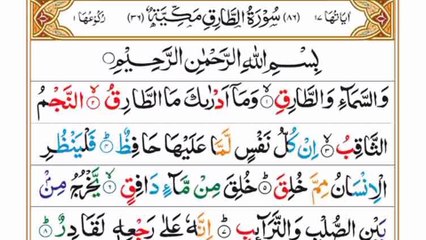 اٰيَاتُهَا ١٧ (٨٦) سُوْرَةُ الطَّارِقِ مَكِّيَّةٌ (٣٦) رُكُوْعُهَا ١
بِسْمِ اللّٰهِ الرَّحْمٰنِ الرَّحِيْمِ
وَالسَّمَآءِ وَالطَّارِقِ ۙ﴿١﴾ وَمَاۤ اَدْرٰىكَ مَا الطَّارِقُ ۙ﴿٢﴾ النَّجْمُ
الثَّاقِبُ ۙ﴿٣﴾ اِنْ كُلُّ نَفْسٍ لَّمَّا عَلَيْهَا حَافِظٌ ؕ﴿٤﴾ فَلْيَنْظُرِ
الْاِنْسَانُ مِمَّ خُلِقَ ؕ﴿٥﴾ خُلِقَ مِنْ مَّآءٍ دَافِقٍ ۙ﴿٦﴾ يَّخْرُجُ مِنْۢ
بَيْنِ الصُّلْبِ وَالتَّرَآئِبِ ؕ﴿٧﴾ اِنَّهٗ عَلٰى رَجْعِهٖ لَقَادِرٌ ؕ﴿٨﴾